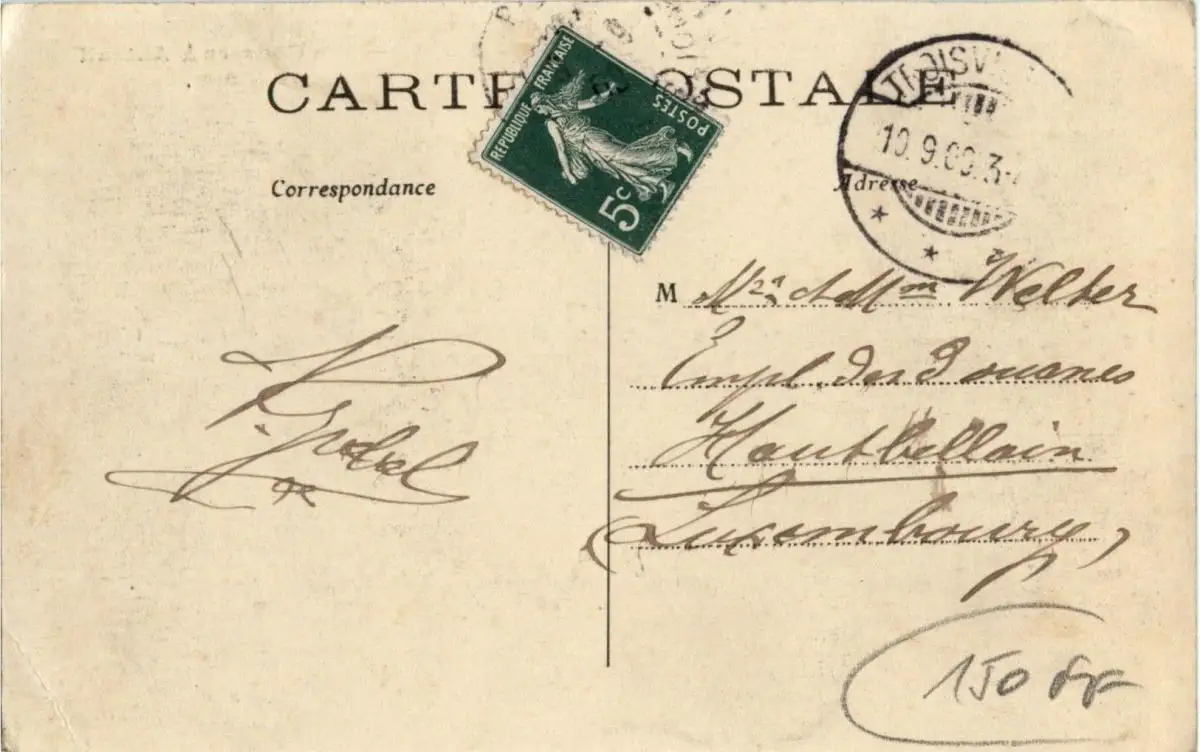 CARTE POSTALE
RÉPUBLIQUE FRANÇAISE
POSTES
5c
TROISVI
10.9.09.3-
Correspondance
Adresse
M Mr et Mme Welter
Empl. des Douanes
Hautbellain
(Luxembourg)
150 fr